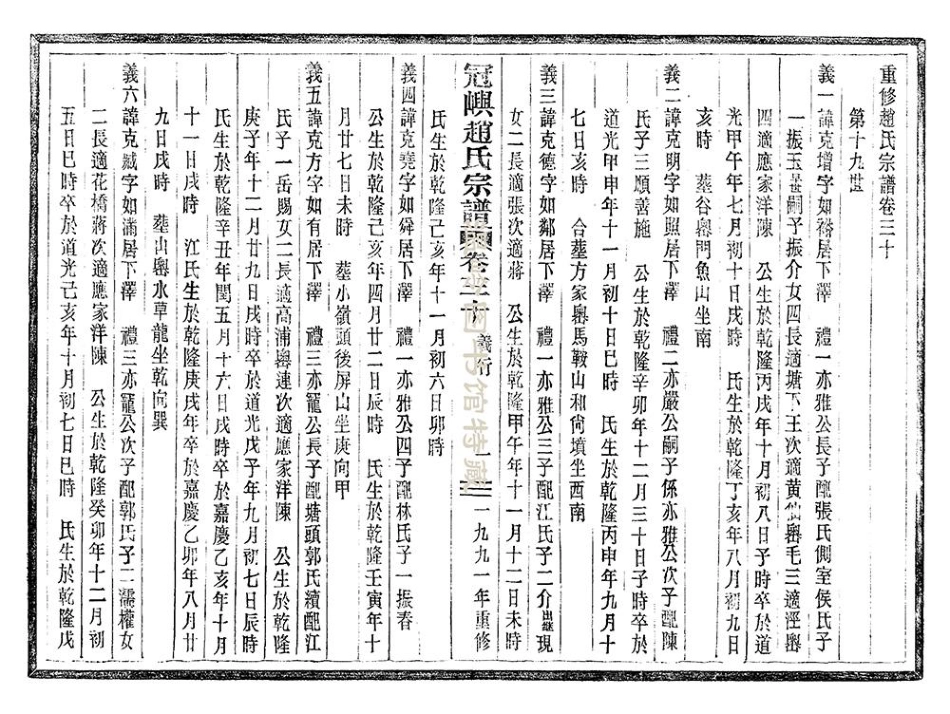 重修趙氏宗譜卷三十
第十九世
義一諱克增字如裕居下澤　禮一亦雅公長子配張氏側室侯氏子
一振玉嗣予振介女四長適塘下王次適黃仙嶴毛三適涇嶴
四適應家洋陳　公生於乾隆丙戌年十月初八日子時卒於道
光甲午年七月初十日戌時　氏生於乾隆丁亥年八月初九日
亥時　墓谷嶴門魚山坐南
義二諱克明字如照居下澤　禮二亦嚴公嗣子係亦雅公次子配陳
氏子三順善施　公生於乾隆辛卯年十二月三十日子時卒於
道光甲申年十一月初十日巳時　氏生於乾隆丙申年九月十
七日亥時　合墓方家嶴馬鞍山和尙墳坐西南
義三諱克德字如鄰居下澤　禮一亦雅公三子配江氏子二介出繼現
女二長適張次適蔣　公生於乾隆甲午年十一月十二日未時
冠嶼趙氏宗譜　卷三十　義行　一　一九九一年重修
氏生於乾隆己亥年十一月初六日卯時
義四諱克堯字如舜居下澤　禮一亦雅公四子配林氏子一振春
公生於乾隆己亥年四月廿二日辰時　氏生於乾隆壬寅年十
月廿七日未時　墓小嶺頭後屏山坐庚向甲
義五諱克方字如有居下澤　禮三亦寵公長子配塘頭郭氏續配江
氏子一岳賜女二長適高浦嶴連次適應家洋陳　公生於乾隆
庚子年十二月廿九日戌時卒於道光戊子年九月初七日辰時
氏生於乾隆辛丑年閏五月十六日戌時卒於嘉慶乙亥年十月
十一日戌時　江氏生於乾隆庚戌年卒於嘉慶乙卯年八月廿
九日戌時　墓山嶴水草龍坐乾向巽
義六諱克臧字如滿居下澤　禮三亦寵公次子配郭氏子二濡權女
二長適花橋蔣次適應家洋陳　公生於乾隆癸卯年十二月初
五日巳時卒於道光己亥年十月初七日巳時　氏生於乾隆戊
图书馆特藏